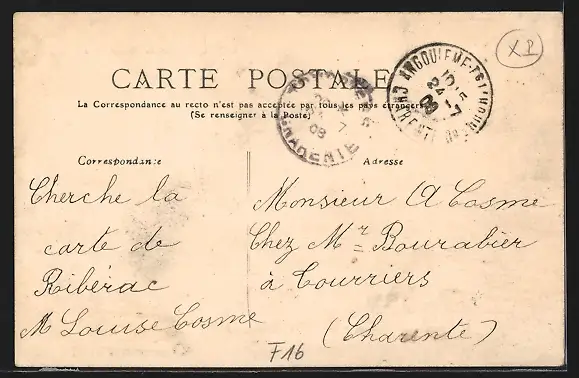 XP
CARTE POSTALE
La Correspondance au recto n'est pas acceptée par tous les pays étrangers
(Se renseigner à la Poste)
ANGOULEME
24 -7
08
CHARENTE
7
08
Correspondance
Adresse
Cherche la
carte de
Ribérac
M Louise Cosme
Monsieur A Cosme
Chez Mr Bourabier
à Courriers
(Charente)
F16